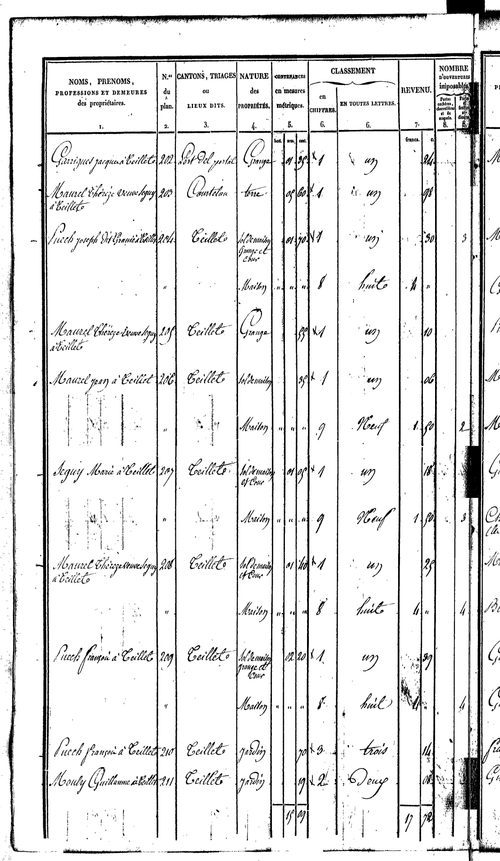 NOMS, PRENOMS,
PROFESSIONS ET DEMEURES
des propriétaires.
1.
N.os
du
plan.
2.
CANTONS, TRIAGES
ou
LIEUX DITS.
3.
NATURE
des
PROPRIÉTÉS.
4.
CONTENANCES
en mesures
métriques.
5.
CLASSEMENT
en
CHIFFRES.
6.
EN TOUTES LETTRES.
6.
REVENU.
7.
NOMBRE
d'ouvertures
imposables.
8.
francs. c.
Garrigues jacques à Teillet 202 Grange 01 1 un 24
Maurel Thérèze veuve Seguy 203 terre 05 60 1 un 98
à Teillet
Puech joseph dit à Teillet 204 Teillet sol de maison 01 70 1 un 30 3
Grange et
Cour
" Maison " " " 8 huit 4 "
Maurel Thérèze veuve Seguy 205 Teillet Grange 55 1 un 10
à Teillet
Maurel jean à Teillet 206 Teillet sol de maison 35 1 un 06
" Maison " " " 9 Neuf 1 50 2
Seguy Marie à Teillet 207 Teillet sol de maison 01 05 1 un 18
et Cour
" Maison " " " 9 Neuf 1 50 3
Maurel Thérèze veuve Seguy 208 Teillet sol de maison 01 40 1 un 25
à Teillet et Cour
" Maison " " " 8 huit 4 " 4
Puech françois à Teillet 209 Teillet sol de maison 02 20 1 un 39
grange et
Cour
" Maison " " " 8 huit 4 " 4
Puech françois à Teillet 210 Teillet jardin 70 3 trois 14
Mouly Guillaume à Teillet 211 Teillet jardin 19 2 Deux
15 09 17 72